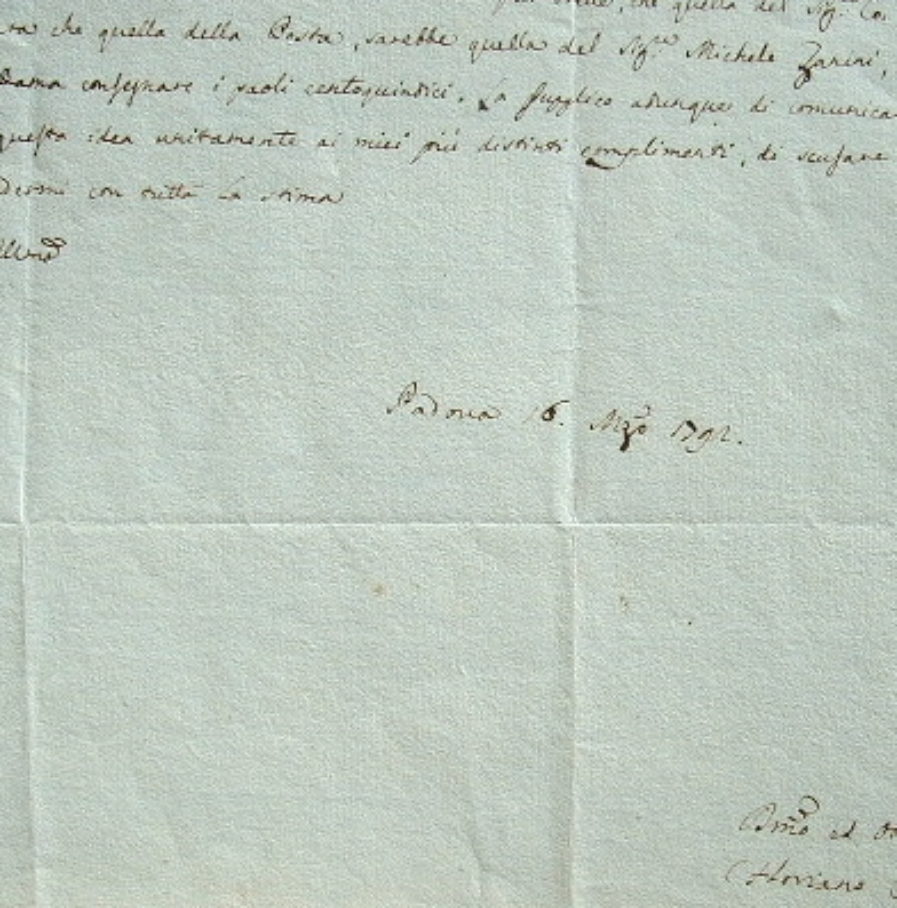 che quella del Sig.re Co.
ra che quella della Posta, sarebbe quella del Sig.re Michele Zarini,
Dama consegnare i paoli centoquindici. La supplico adunque di comunica
questa idea unitamente ai miei più distinti complimenti, di scusare
dermi con tutta la stima
Padova 16. Mzo 1792.
Dmo ed
Floriano